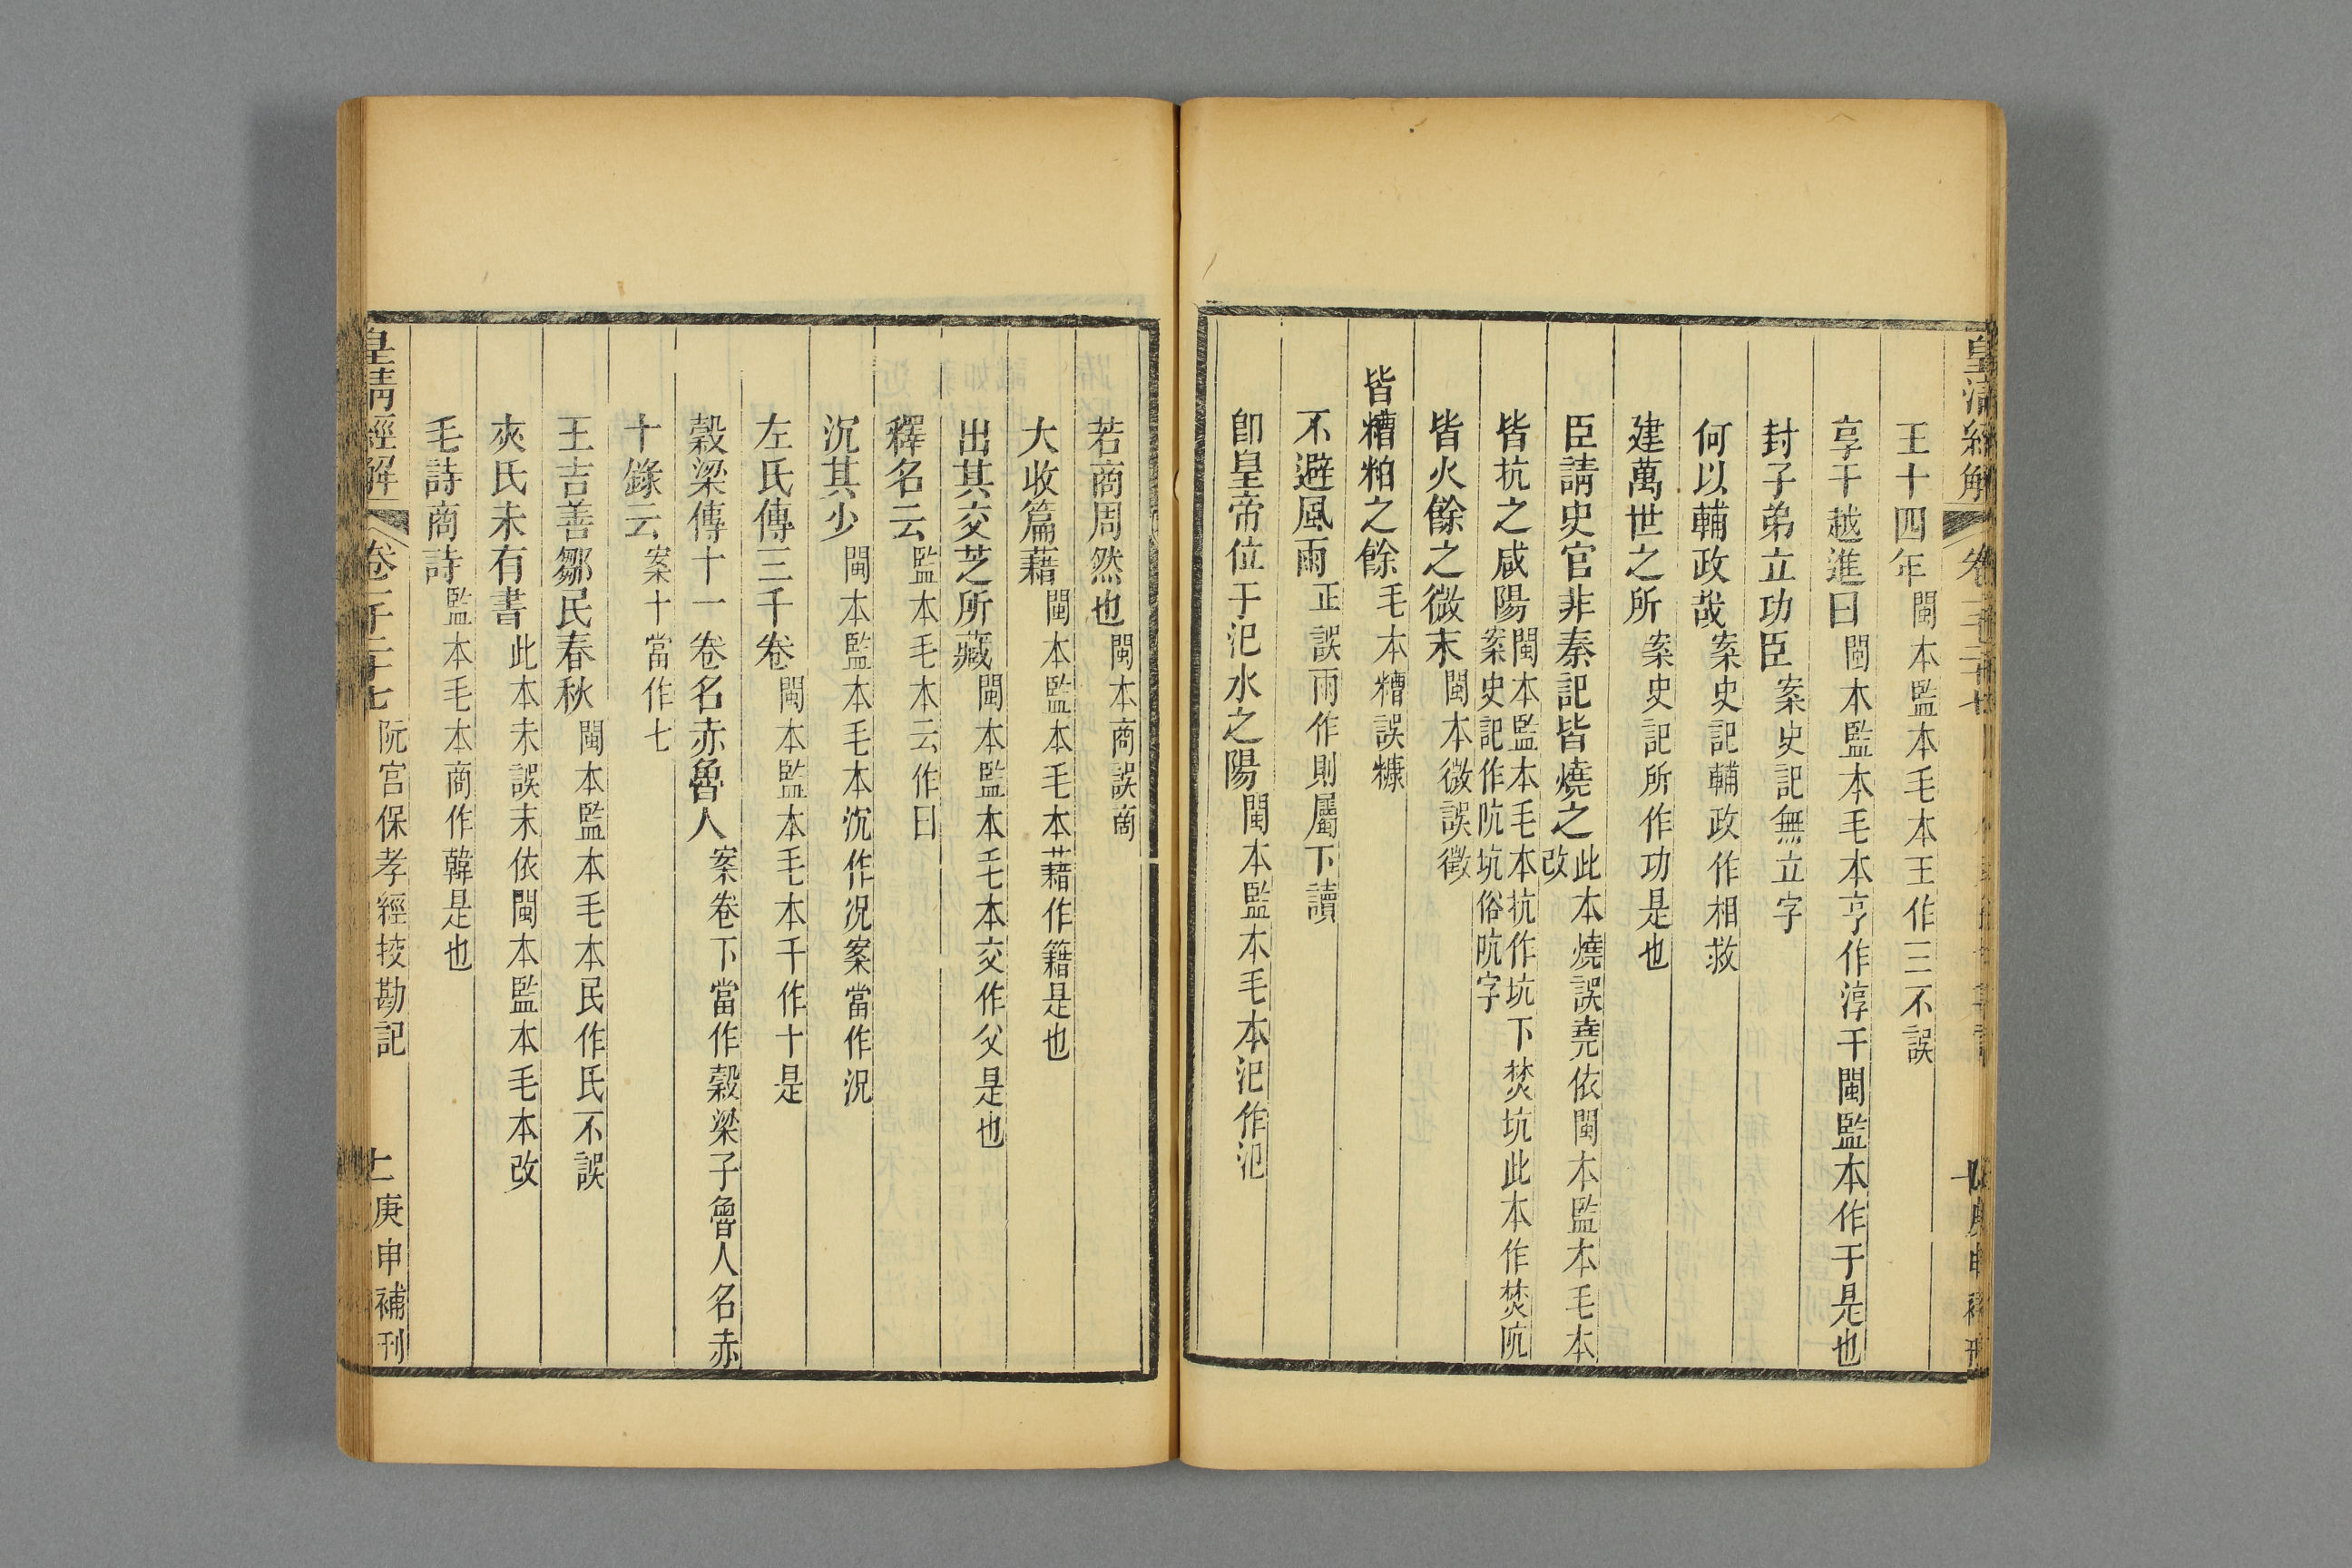 王十四年閩本監本毛本王作三不誤
享干越進曰閩本監本毛本亨作淳干閩監本作于是也
封子弟立功臣案史記無立字
何以輔政哉案史記輔政作相救
建萬世之所案史記所作功是也
臣請史官非秦記皆燒之此本燒誤堯依閩本監本毛本改
皆抗之咸陽閩本監本毛本抗作坑下焚坑此本作焚阬案史記作阬坑俗阬字
皆火餘之微末閩本微誤徵
皆糟粕之餘毛本糟誤糠
不避風雨正誤雨作則屬下讀
卽皇帝位于汜水之陽閩本監本毛本汜作氾
若商周然也閩本商誤啇
大收篇藉閩本監本毛本藉作籍是也
出其交芝所藏閩本監本毛本交作父是也
釋名云監本毛本云作曰
沉其少閩本監本毛本沉作况案當作況
左氏傳三千卷閩本監本毛本千作十是
穀梁傳十一卷名赤魯人案卷下當作穀梁子魯人名赤
十錄云案十當作七
王吉善鄒民春秋閩本監本毛本民作氏不誤
夾氏未有書此本未誤末依閩本監本毛本改
毛詩商詩監本毛本商作韓是也
皇清經解 卷一千二十七 阮宫保孝經挍勘記 庚申補刊